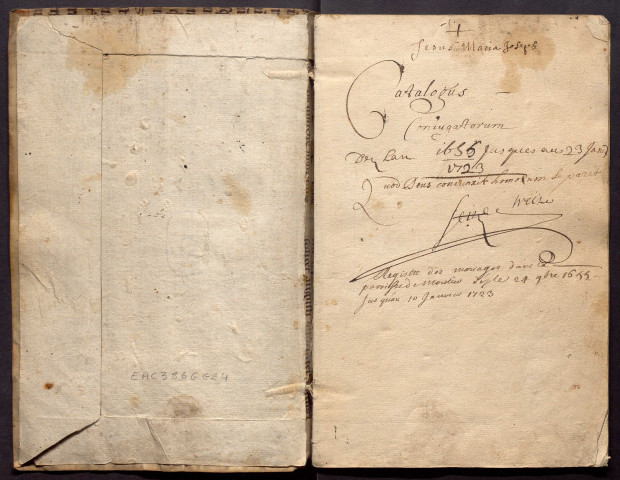 EAC386GG24
Jesus Maria Joseph
Catalogus
Conjugatorum
Den Lan 1655 Jusques au 23 Janv
1723
Quod Deus conjunxit homo non separet
Registre des mariages dans la
paroisse de depuis le 24 9bre 1655
Jusquau 10 Janvier 1723